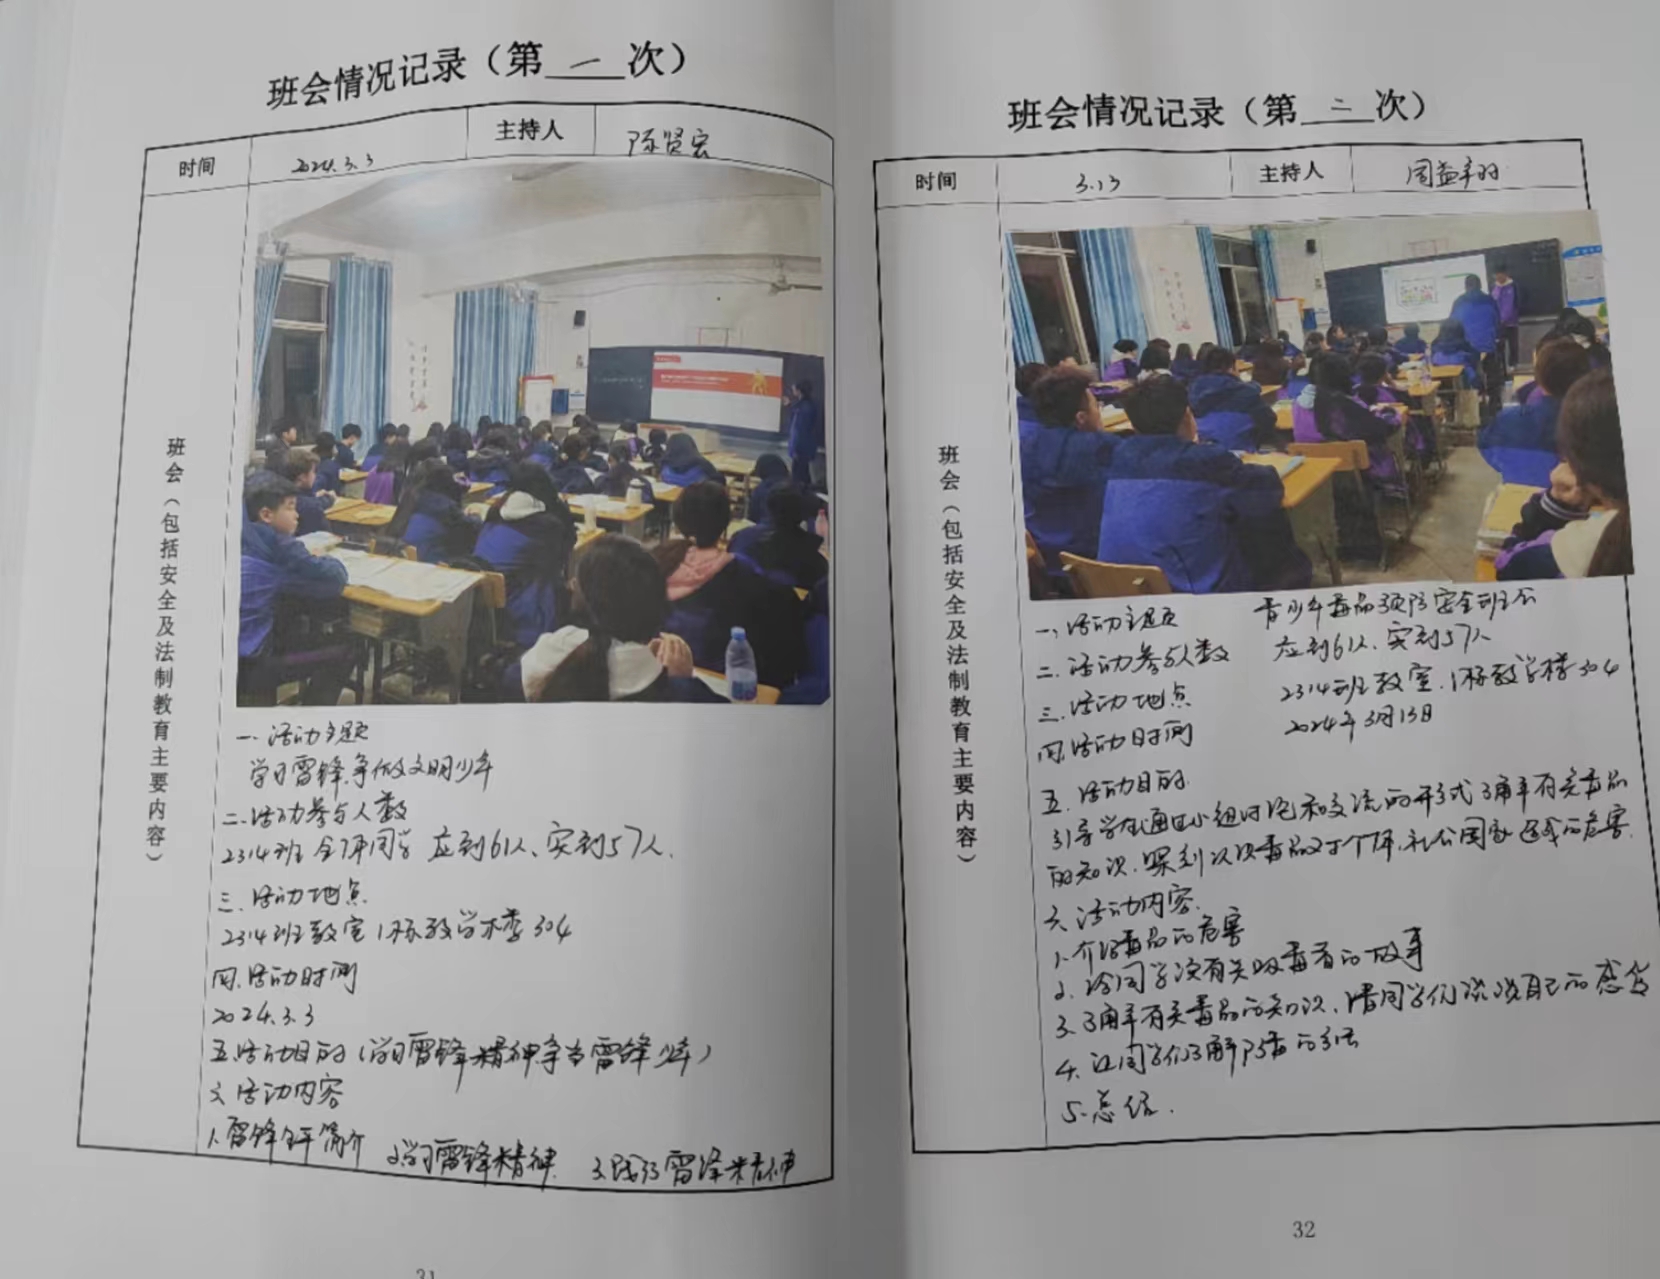 班会情况记录（第一次）
时间 2024.3.3 主持人 陈贤宏
班会（包括安全及法制教育主要内容）
一.活动主题
学习雷锋.争做文明少年
二.活动参与人数
2314班全体同学 应到61人、实到57人.
三.活动地点
2314班教室 1栋教学楼304
四.活动时间
2024.3.3
五.活动目的（学习雷锋精神争当雷锋少年）
六活动内容
1.雷锋生平简介 2.学习雷锋精神. 3.践行雷锋精神
31
班会情况记录（第二次）
时间 3.13 主持人
班会（包括安全及法制教育主要内容）
一、活动主题 青少年毒品预防安全班会
二.活动参与人数 应到61人、实到57人
三.活动地点 2314班教室.1栋教学楼304
四.活动时间 2024年3月13日
五.活动目的.
引导学生通过小组讨论和交流的形式了解有关毒品
的知识.深刻认识毒品对于个体,社会国家运命的危害.
六.活动内容.
1.介绍毒品的危害
2.给同学没有关吸毒者的故事
3.了解有关毒品的知识,请同学们谈谈自己的感受
4.让同学们了解防毒的方法
5.总结.
32